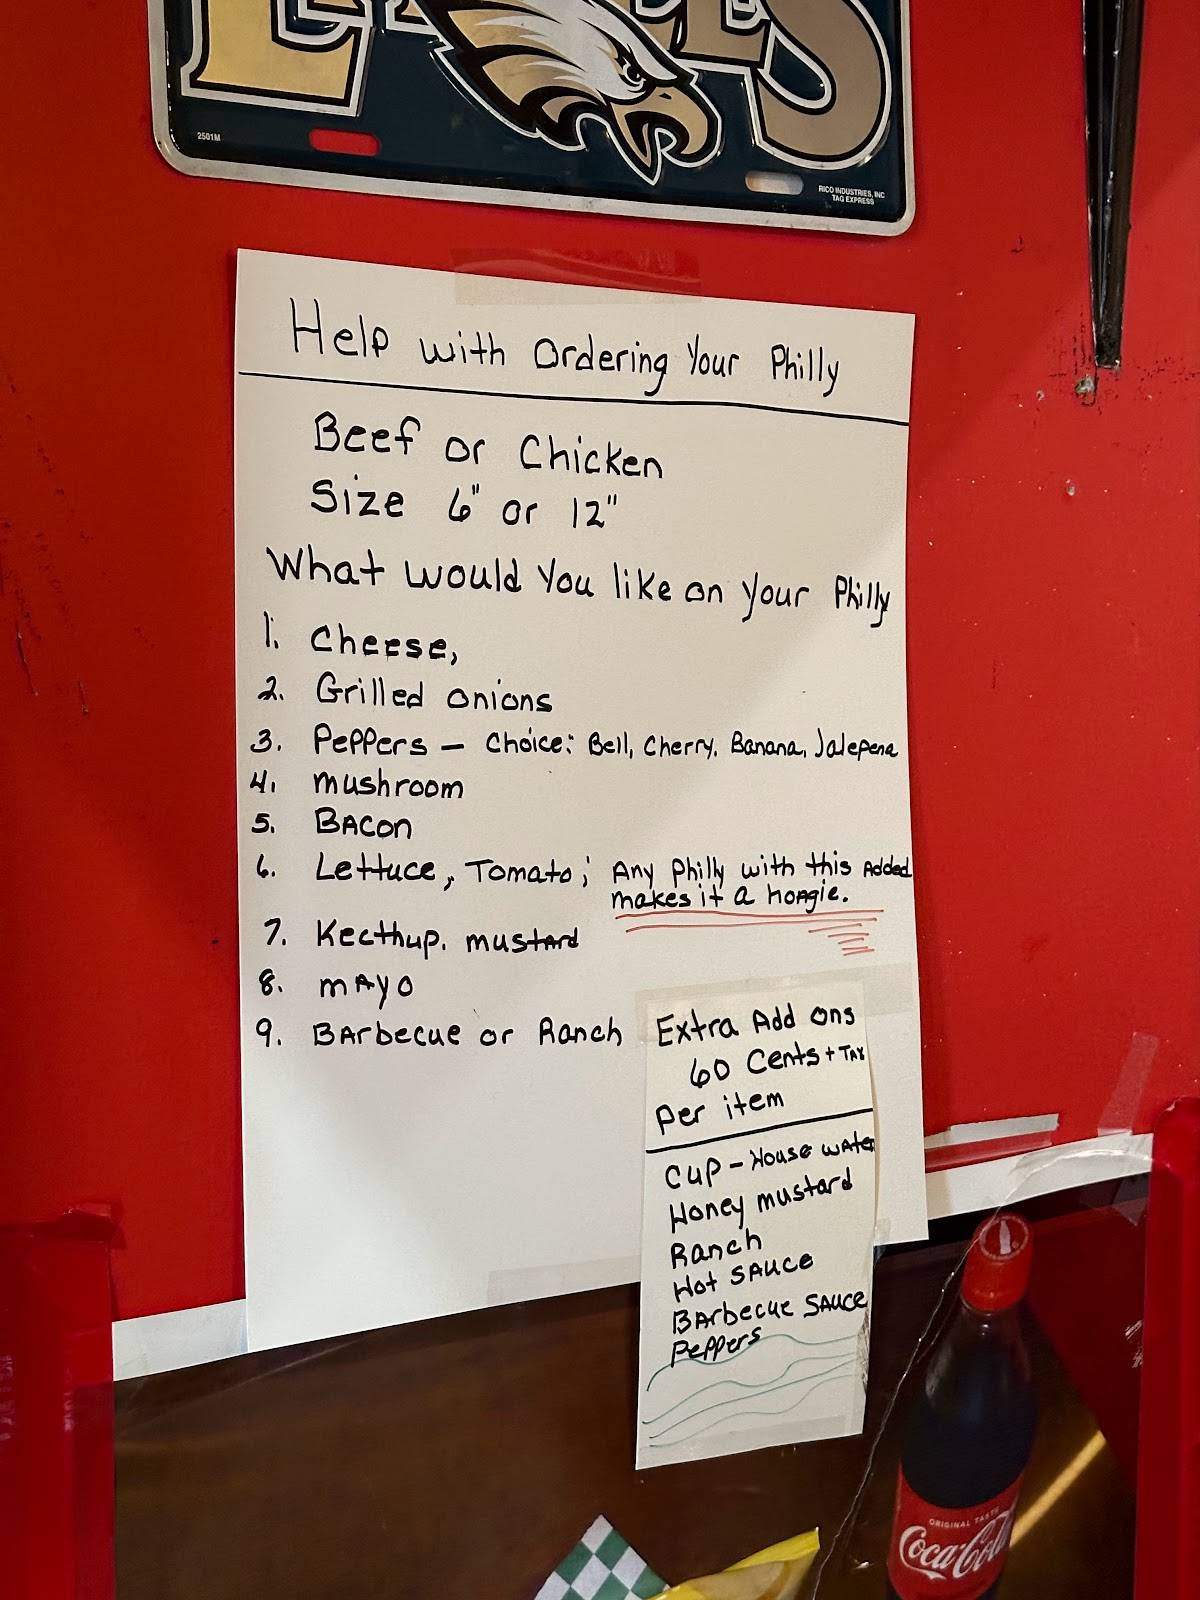 2501M
RICO INDUSTRIES, INC
TAG EXPRESS
Help with Ordering Your Philly
Beef or Chicken
Size 6" or 12"
What would You like on Your Philly
1. Cheese,
2. Grilled onions
3. Peppers — Choice: Bell, Cherry, Banana, Jalepena
4. mushroom
5. BAcon
6. Lettuce, Tomato; Any Philly with this Added
makes it a hoagie.
7. Kecthup, mustard
8. mAyo
9. BArbecue or Ranch
Extra Add ons
60 Cents + TAX
Per item
Cup - House wAter
Honey mustard
Ranch
Hot SAuce
BArbecue SAuce
Peppers
ORIGINAL TASTE
Coca-Cola